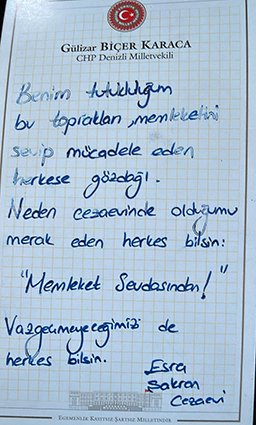 Gülizar BİÇER KARACA
CHP Denizli Milletvekili
Benim tutukluluğum
bu toprakları, memleketini
sevip mücadele eden
herkese gözdağı.
Neden cezaevinde olduğumu
merak eden herkes bilsin:
"Memleket Sevdasından!"
Vazgeçmeyeceğimizi de
herkes bilsin.
Esra
Şakran
Cezaevi
EGEMENLİK KAYITSIZ ŞARTSIZ MİLLETİNDİR